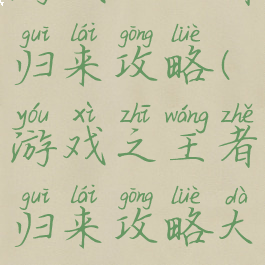 guī lái gōng lüè
归来攻略(
yóu xì zhī wáng zhě
游戏之王者
guī lái gōng lüè dà
归来攻略大